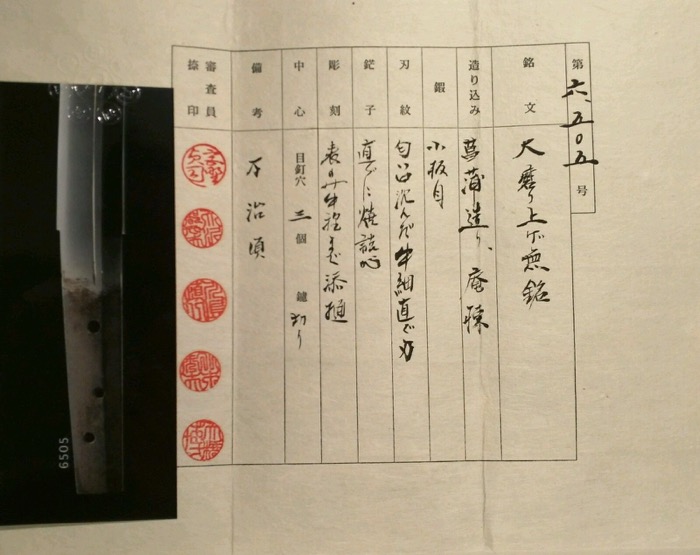 第 六、五〇五 号
銘文 大磨り上げ無銘
造り込み 菖蒲造り、庵棟
鍛 小板目
刃紋 匂口沈んだ中細直ぐ刃
鋩子 直ぐに焼詰心
彫刻 表裏中程まで添樋
中心 目釘穴 三個 鑢 切り
備考 万治頃
審査員捺印
6505